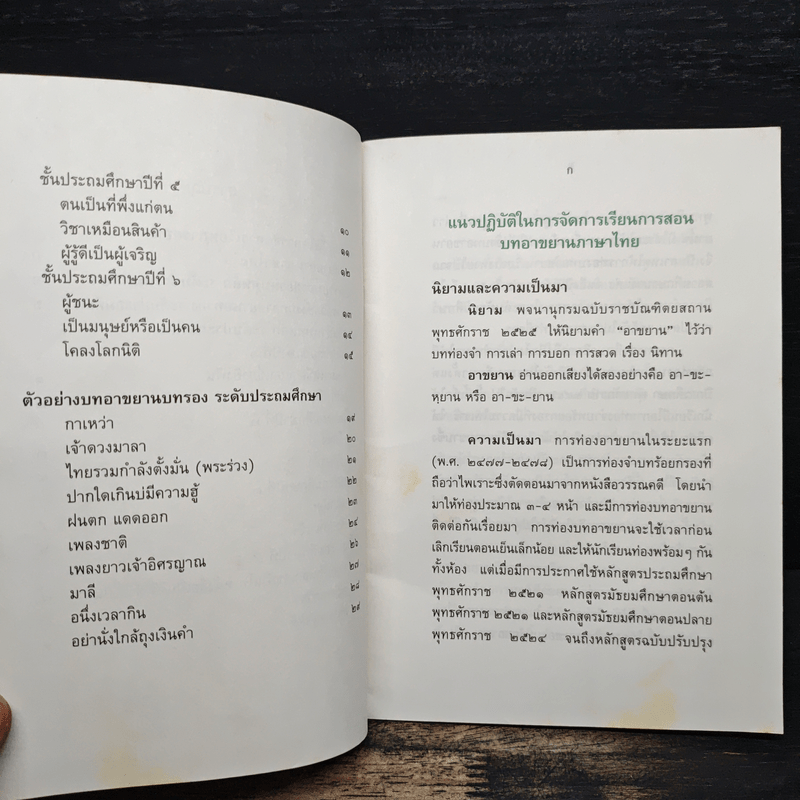 ชั้นประถมศึกษาปีที่ ๕
ตนเป็นที่พึ่งแก่ตน
วิชาเหมือนสินค้า ๑๐
ผู้รู้ดีเป็นผู้เจริญ ๑๑
ชั้นประถมศึกษาปีที่ ๖ ๑๒
ผู้ชนะ ๑๓
เป็นมนุษย์หรือเป็นคน ๑๔
โคลงโลกนิติ ๑๕
ตัวอย่างบทอาขยานบทรอง ระดับประถมศึกษา
กาเหว่า ๑๙
เจ้าดวงมาลา ๒๐
ไทยรวมกำลังตั้งมั่น (พระร่วง) ๒๑
ปากใดเกินบ่มีความฮู้ ๒๒
ฝนตก แดดออก ๒๓
เพลงชาติ ๒๔
เพลงยาวเจ้าอิศรญาณ ๒๖
มาลี ๒๗
อนึ่งเวลากิน ๒๘
อย่านั่งใกล้ถุงเงินคำ ๒๙
ก
แนวปฏิบัติในการจัดการเรียนการสอน
บทอาขยานภาษาไทย
นิยามและความเป็นมา
นิยาม พจนานุกรมฉบับราชบัณฑิตยสถาน
พุทธศักราช ๒๕๒๕ ให้นิยามคำ “อาขยาน” ไว้ว่า
บทท่องจำ การเล่า การบอก การสวด เรื่อง นิทาน
อาขยาน อ่านออกเสียงได้สองอย่างคือ อา-ขะ-
หฺยาน หรือ อา-ขะ-ยาน
ความเป็นมา การท่องอาขยานในระยะแรก
(พ.ศ. ๒๔๗๗-๒๔๗๘) เป็นการท่องจำบทร้อยกรองที่
ถือว่าไพเราะซึ่งตัดตอนมาจากหนังสือวรรณคดี โดยนำ
มาให้ท่องประมาณ ๓-๔ หน้า และมีการท่องบทอาขยาน
ติดต่อกันเรื่อยมา การท่องบทอาขยานจะใช้เวลาก่อน
เลิกเรียนตอนเย็นเล็กน้อย และให้นักเรียนท่องพร้อมๆ กัน
ทั้งห้อง แต่เมื่อมีการประกาศใช้หลักสูตรประถมศึกษา
พุทธศักราช ๒๕๒๑ หลักสูตรมัธยมศึกษาตอนต้น
พุทธศักราช ๒๕๒๑ และหลักสูตรมัธยมศึกษาตอนปลาย
พุทธศักราช ๒๕๒๔ จนถึงหลักสูตรฉบับปรับปรุง